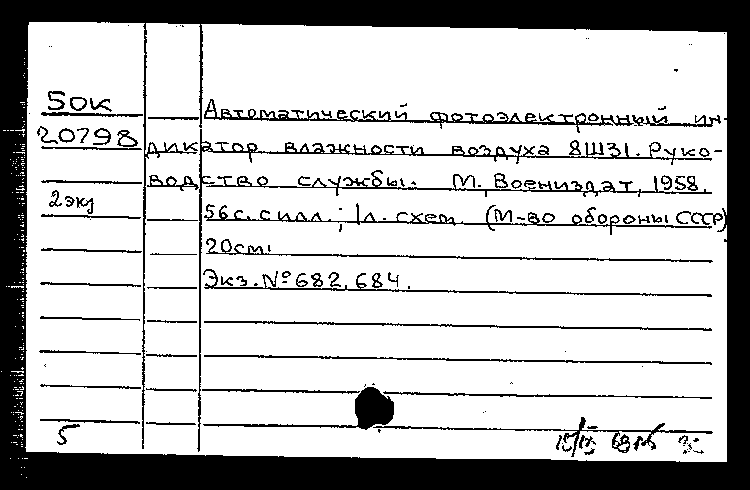 50к Автоматический фотоэлектронный ин-
20798 дикатор влажности воздуха 8Ш31. Руко-
водство службы. М., Воениздат, 1958.
2 экз 56 с. с илл.; 1 л. схем. (М-во обороны СССР)
20см.
Экз. № 682, 684.
5